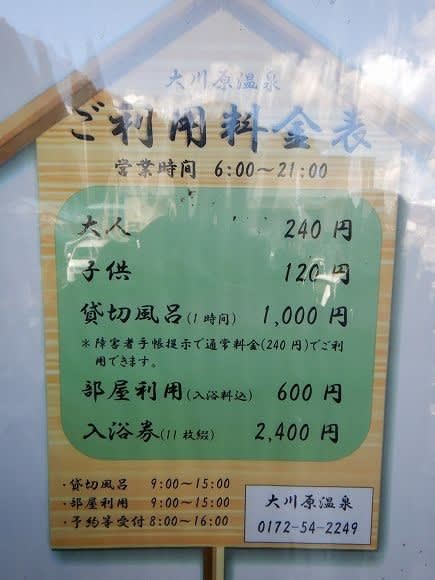 大川原温泉
ご利用料金表
営業時間 6:00～21:00
大人 240 円
子供 120 円
貸切風呂(1時間) 1,000 円
＊障害者手帳提示で通常料金(240円)でご利
用できます。
部屋利用(入浴料込) 600 円
入浴券(11枚綴) 2,400 円
・貸切風呂 9:00～15:00
・部屋利用 9:00～15:00
・予約等受付 8:00～16:00
大川原温泉
0172-54-2249